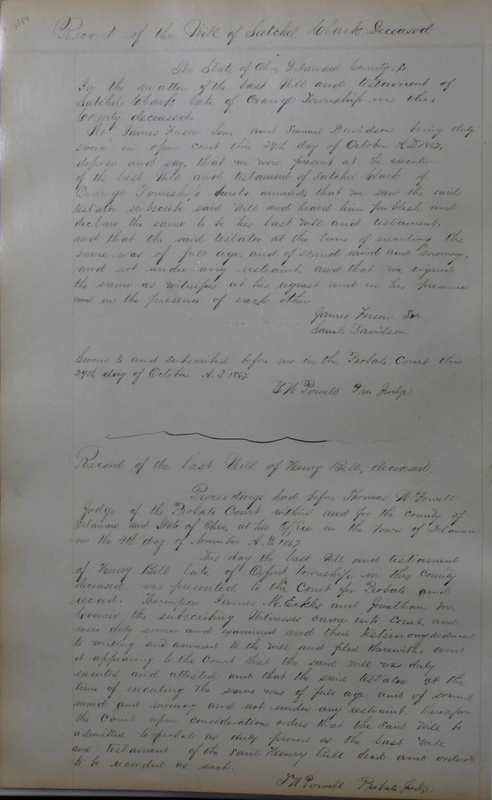 Record of the Will of Satchel Clark Deceased
The State of Ohio Delaware County, ss
In the matter of the last Will and testament of
Satchel Clark late of Orange Township in this
County deceased.
We James Ferson Senr and Samuel Davidson being duly
sworn in open court this 29th day of October A.D. 1867,
depose and say, that we were present at the execution
of the last Will and testament of Satchel Clark of
Orange Township hereto annexed, that we saw the said
testator subscribe said Will and heard him publish and
declare the same to be his last will and testament,
and that the said testator at the time of executing the
same was of full age, and of sound mind and memory,
and not under any restraint, and that we signed
the same as witnesses at his request and in his presence
and in the presence of each other
James Ferson Sr
Saml Davidson
Sworn to and subscribed before me in the Probate Court this
29th day of October A.D. 1867
T W Powell Pro Judge
Record of the last Will of Henry Bell, deceased.
Proceedings had before Thomas W Powell
Judge of the Probate Court within and for the county of
Delaware and State of Ohio, at his Office in the town of Delaware
on the 4th day of November A.D. 1867
This day the last Will and testament
of Henry Bell late of Oxford township in this County
deceased was presented to the Court for Probate and
record. Thereupon James M. Eckles and Jonathan M.
the subscribing Witnesses came into Court and
were duly sworn and examined and their testimony reduced
to writing and annexed to the will and filed therewith, and
it appearing to the Court that the said will was duly
executed and attested and that the said testator at the
time of executing the same was of full age and of sound
mind and memory and not under any restraint, thereupon
the Court upon consideration orders that the said Will be
admitted to probate as duly proven as the last Will
and testament of the said Henry Bell decd and ordered
to be recorded as such.
T W Powell Probate Judge